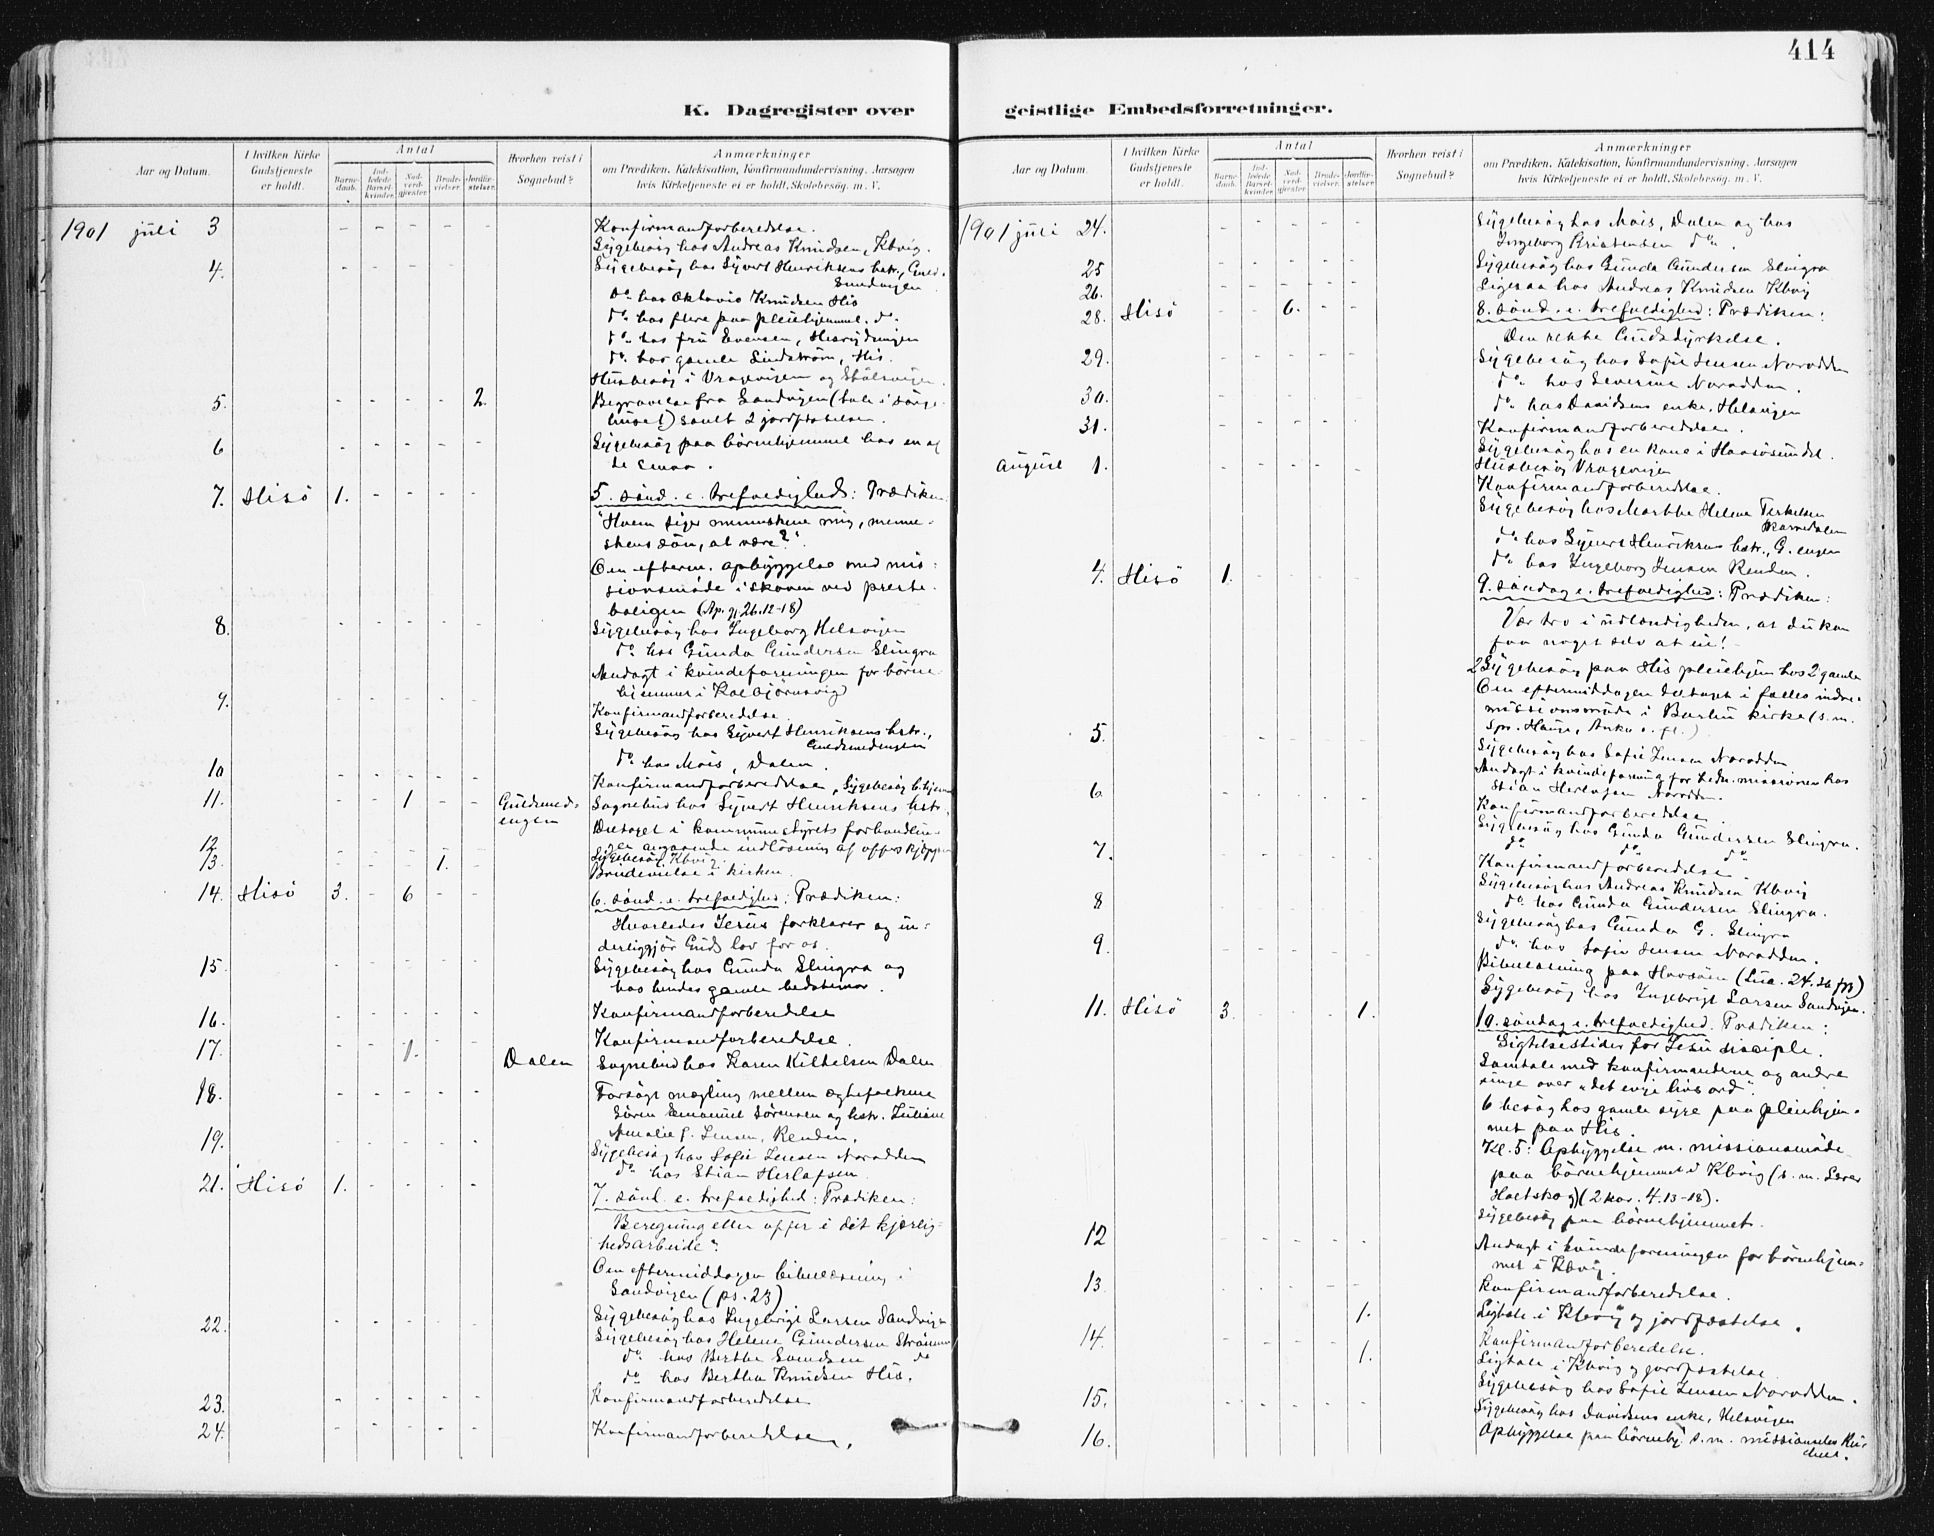 414
K. Dagregister over
Aar og Datum.
I hvilken Kirke Gudstjeneste er holdt.
Antal
Barnedaab.
Indledede Barselkvinder.
Nadverdgjester.
Brudevielser.
Jordfæstelser.
Hvorhen reist i Sognebud?
Anmærkninger
om Prædiken, Katekisation, Konfirmandundervisning, Aarsagen
hvis Kirketjeneste ei er holdt, Skolebesøg, m. V.
1901 juli 3 - - - - - Konfirmandforberedelse.
Sygebesøg hos Andreas Knudsen, Kbvig.
4. - - - - - Sygebesøg hos Syvert Henriksens hstr., Guld-
smedengen
do hos Oktavio Knudsen His
do hos flere paa pleiehjemmet do
do hos fru Evensen, Hisrydningen
do hos gamle Lindstrøm, His.
Husbesøg i Vragevigen og Skolevigen.
5. - - - - 2. Begravelse fra Sandvigen (tale i sørge-
huset) samt 2 jordfæstelser.
6 - - - - - Sygebesøg paa børnehjemmet hos en af
de smaa.
7. Hisö 1. - - - - 5. sönd. e. trefoldighed: Prædiken
"Hvem siger menneskene mig, menne-
skens søn, at være?".
Om efterm. opbyggelse med mis-
sionsmøde i skoven ved preste-
boligen (Ap. gj. 26. 12-18)
8. - - - - - Sygebesøg hos Ingeborg Helsvigen
do hos Gunda Gundersen Slingra
Andagt i kvindeforeningen for børne-
hjemmet i Kolbjørnsvig
9. - - - - - Konfirmandforberedelse
Sygebesøg hos Syvert Henriksens hstr.,
Guldsmedengen
do hos Mois, Dalen.
10 - - - - - Konfirmandforberedelse, Sygebesøg b.hjem
11. - - 1 - - Guldsmeds-
engen
Sognebud hos Syvert Henriksens hstr.
Deltaget i kommunestyrets forhandlin-
ger angaaende indløsning af offer
12 - - - - - Sygebesøg Kbvig.
13. - - - 1. - Brudevielse i kirken.
14. Hisö 3. - 6 - - 6. sönd. e. trefoldighed: Prædiken:
Hvorledes Jesus forklarer og in-
derliggjør Guds lov for os.
15 - - - - - Sygebesøg hos Gunda Slingra og
hos hendes gamle bedstemor.
16. - - - - - Konfirmandforberedelse
17. - - 1. - - Konfirmandforberedelse.
Dalen Sognebud hos Karen Kittelsen Dalen
18. - - - - - Forsøgt mægling mellem ægtefolkene
Søren Emanuel Sørensen og hstr. Juliane
Amalie f. Jensen, Renden.
19. - - - - - Sygebesøg hos Sofie Jensen Narodden
do hos Stian Herlofsen
21. Hisö 1. - - - - 7. sönd. e. trefoldighed: Prædiken:
Beregning eller offer i dit kjærlig-
hedsarbeide".
Om eftermiddagen bibellæsning i
Sandvigen (ps. 23)
22. - - - - - Sygebesøg hos Ingebrigt Larsen Sandvigen
Sygebesøg hos Helene Gundersen Strømmen
do hos Berthe Svendsen do
do hos Bertha Knudsen His.
23. - - - - - Konfirmandforberedelse
24. - - - - - Konfirmandforberedelse.
geistlige Embedsforretninger.
Aar og Datum.
I hvilken Kirke Gudstjeneste er holdt.
Antal
Barnedaab.
Indledede Barselkvinder.
Nadverdgjester.
Brudevielser.
Jordfæstelser.
Hvorhen reist i Sognebud?
Anmærkninger
om Prædiken, Katekisation, Konfirmandundervisning, Aarsagen
hvis Kirketjeneste ei er holdt, Skolebesøg, m. V.
1901 juli 24. - - - - - Sygebesøg hos Mois, Dalen og hos
Ingeborg Kristensen do.
25 - - - - - Sygebesøg hos Gunda Gundersen Slingra
26. - - - - - Ligesaa hos Andreas Knudsen Kbvig
28. Hisö - - 6. - - 8. sönd. e. trefoldighed: Prædiken:
Den rette Gudsdyrkelse.
29. - - - - - Sygebesøg hos Sofie Jensen Narodden
do hos Severine Narodden.
30. - - - - - do hos Davidsens enke, Helsvigen
31. - - - - - Konfirmandforberedelse.
Sygebesøg hos en kone i Havsøsundet.
august 1. - - - - - Husbesøg Vragevigen
Konfirmandforberedelse.
Sygebesøg hos Marthe Helene Terkelsen
do hos Syvert Henriksens hstr., G. engen
do hos Ingeborg Jensen Renden.
4. Hisö 1. - - - - 9. söndag e. trefoldighed: Prædiken:
Vær tro i udlændigheden, at du kan
faa noget selv at eie!
2 Sygebesøg paa His pleiehjem hos 2 gamle
Om eftermiddagen deltaget i fælles indre-
missionsmøde i Barbu kirke (s. m.
spr. Hauge, Anker o. fl.)
5. - - - - - Sygebesøg hos Sofie Jensen Narodden
Andagt i kvindeforening for hedn. missionen hos
Stian Herlofsen Narodden.
6 - - - - - Konfirmandforberedelse.
Sygebesøg hos Gunda Gundersen Slingra.
7. - - - - - do do do
Konfirmandforberedelse.
Sygebesøg hos Andreas Knudsen Kbvig
8 - - - - - do hos Gunda Gundersen Slingra.
Sygebesøg hos Gunda G. Slingra
9. - - - - - do hos Sofie Jensen Narodden.
Bibellæsning paa Havsøen (Luc. 24. 36 fgg)
Sygebesøg hos Ingebrigt Larsen Sandvigen.
11. Hisö 3. - - - 1. 10. söndag e. trefoldighed. Prædiken:
Sigtelsestider for Jesu disciple.
Samtale med konfirmanderne og andre
unge over „det evige livs ord".
6 besøg hos gamle syge paa pleiehjem-
met paa His.
Kl. 5: Opbyggelse m. missionsmøde
paa børnehjemmet Kbvig (s. m. Lærer
Holtskog) (2 kor. 4. 13-18).
12 - - - - - Sygebesøg paa børnehjemmet.
Andagt i kvindeforeningen for børnehjem-
met i Kbvig.
13. - - - - - Konfirmandforberedelse.
1. Ligtale i Kbvig og jordfæstelse.
14. - - - - Konfirmandforberedelse.
1. Ligtale i Kbvig og jordfæstelse
15. - - - - - Sygebesøg hos Sofie Jensen Narodden.
Sygebesøg hos Davidsens enke, Helsvigen
16. - - - - - Opbyggelse paa børnehj. s. m. missionær